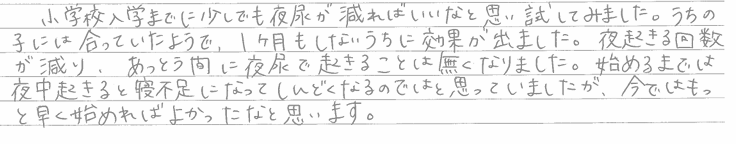 小学校入学までに少しでも夜尿が減ればいいなと思い試してみました。うちの
子には合っていたようで、1ヶ月もしないうちに効果が出ました。夜起きる回数
が減り、あっとう間に夜尿で起きることは無くなりました。始めるまでは
夜中起きると寝不足になってしんどくなるのではと思っていましたが、今ではもっ
と早く始めればよかったなと思います。